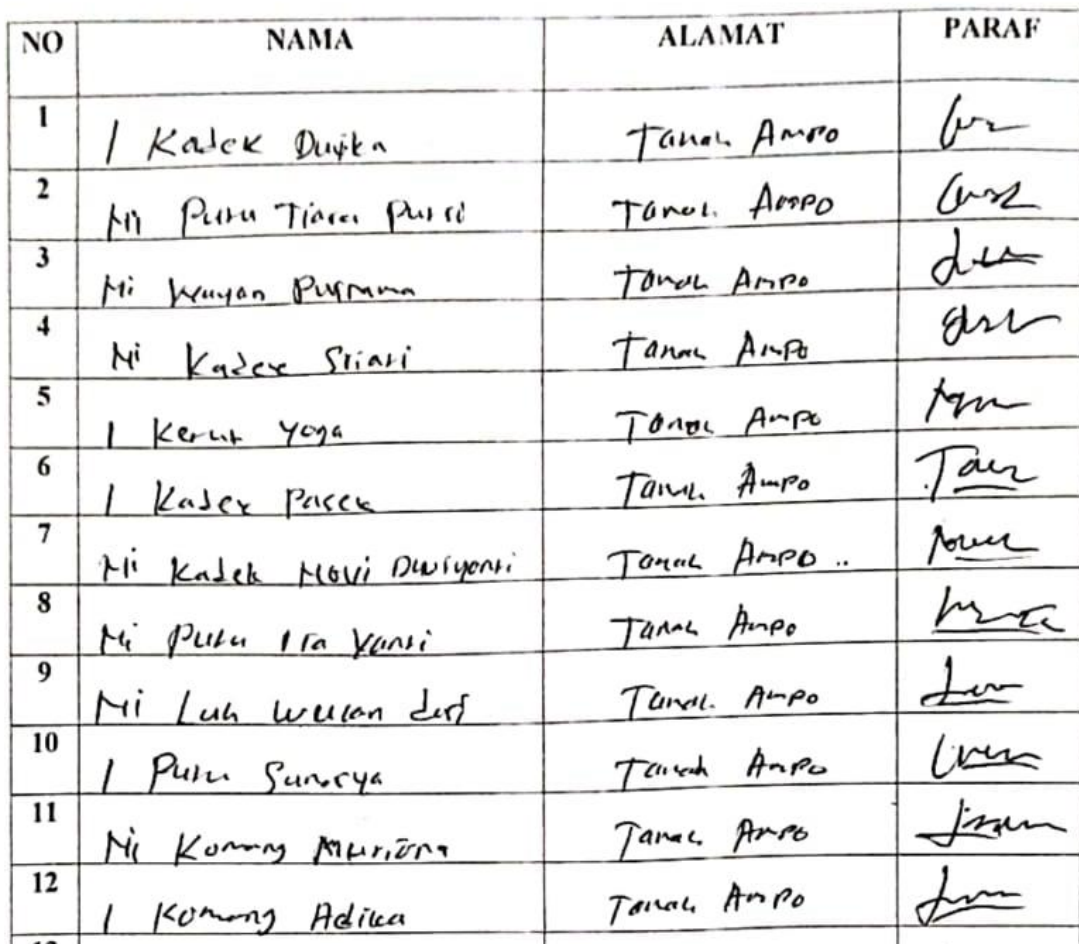 NO NAMA ALAMAT PARAF
1 I Kadek Dwika Tanah Ampo
2 Ni Putu Tiara Putri Tanah Ampo
3 Ni Wayan Purnama Tanah Ampo
4 Ni Kadek Sriasi Tanah Ampo
5 I Ketut Yoga Tanah Ampo
6 I Kadek Pasek Tanah Ampo
7 Ni Kadek Novi Dwiyanti Tanah Ampo ..
8 Ni Putu Ira Yanti Tanah Ampo
9 Ni Luh Wulan Tanah Ampo
10 I Putu Tanah Ampo
11 Ni Komang Tanah Ampo
12 I Komang Adika Tanah Ampo